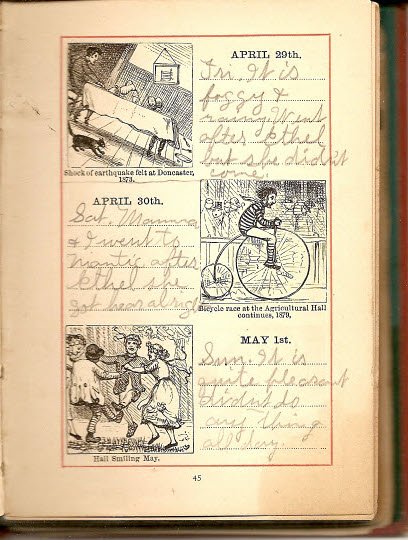 APRIL 29th.
Fri. It is
foggy &
rainy. Went
after Ethel
but she didn't
come.
Shock of earthquake felt at Doncaster,
1873.
APRIL 30th.
Sat. Mamma
& I went to
Nantic after
Ethel she
got hear alright
Bicycle race at the Agricultural Hall
continues, 1879.
MAY 1st.
Sun. It is
quite pleasant
didn't do
any thing
all day.
Hail Smiling May.
45